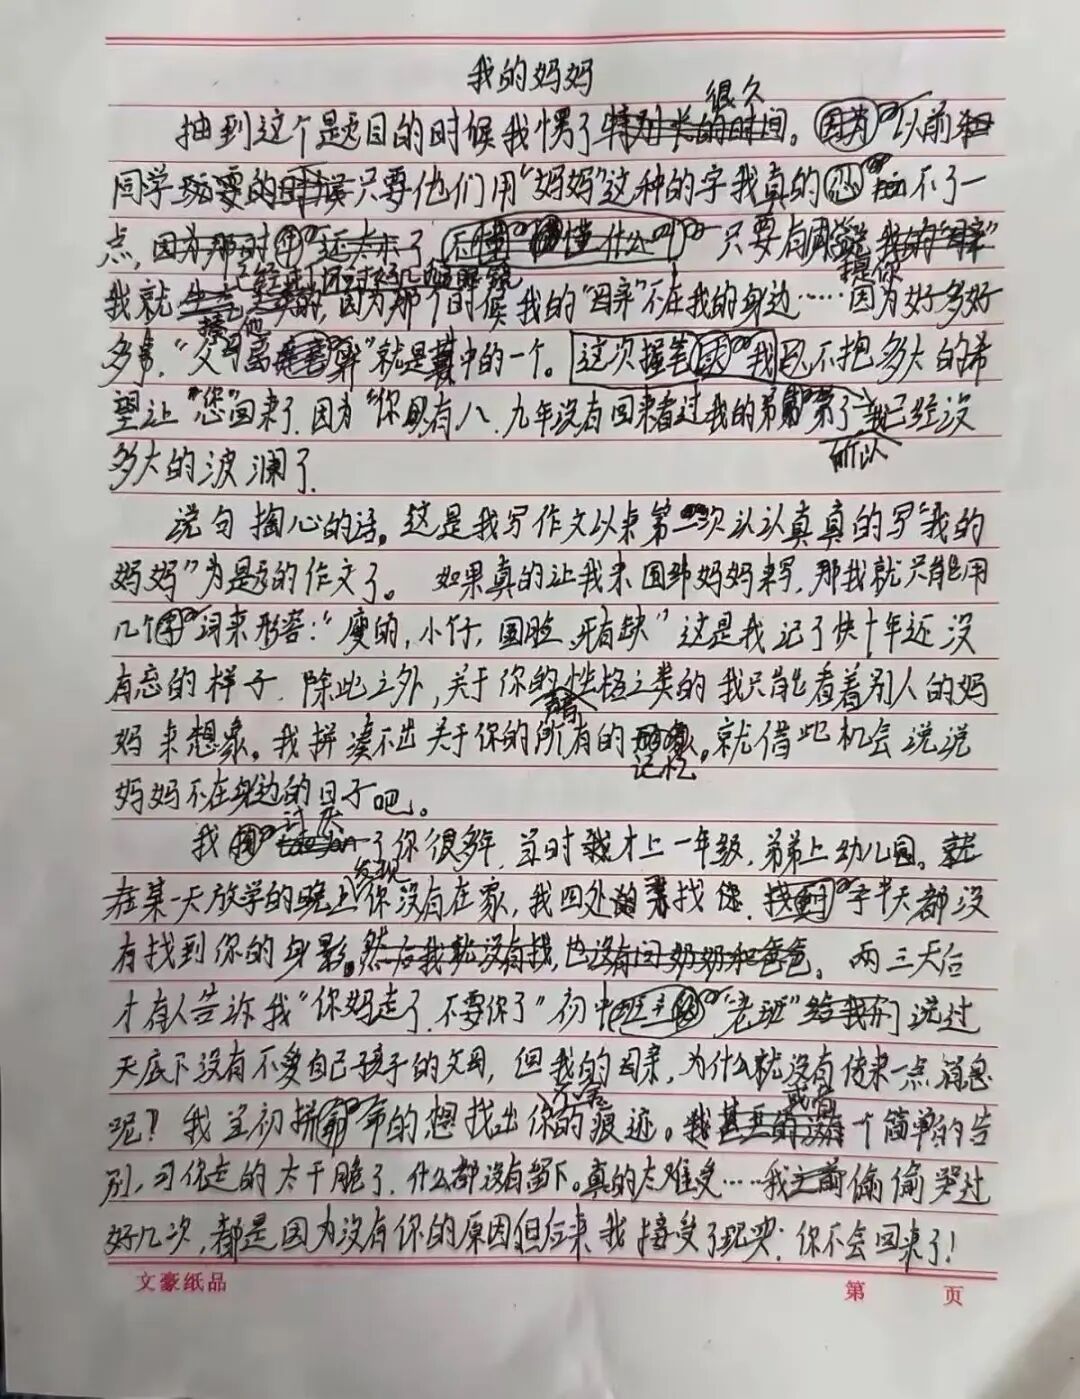 我的妈妈
很久
抽到这个题目的时候我愣了特别长的时间。因为以前和
同学玩耍的时候只要他们用“妈妈”这种的字我真的忍不了一
点,因为那时还太小了不懂什么叫 只要有同学提
已经
我就生气 的,因为那个时候我的“母亲”不在我的身边……因为好多好
多事,“父母离异”就是其中的一个。这次握笔 我已不抱多大的希
望让“您”回来了,因为“你”具有八、九年没有回来看过我的弟弟了我已经没
所以
多大的波澜了.
说句掏心的话。这是我写作文以来第一次认认真真的写“我的
妈妈”为题的作文了。 如果真的让我来围绕妈妈来写,那我就只能用
几个词来形容:“瘦的,小仔,圆脸,牙有缺”这是我记了快十年还没
有忘的样子.除此之外,关于你的性格之类的我只能看着别人的妈
妈来想象。我拼凑不出关于你的所有的 。就借此机会说说
记忆
妈妈不在身边的日子吧。
讨厌
我 了你很多年,当时我才上一年级,弟弟上幼儿园。就
发现
在某一天放学的晚上你没有在家,我四处的寻找你.找 半天都没
有找到你的身影,然后我就没有找,也没有问奶奶和爸爸。两三天后
才有人告诉我“你妈走了,不要你了”初中班主任“老班”给我们说过
天底下没有不爱自己孩子的父母,但我的母亲,为什么就没有传来一点消息
呢?我 初拼 命的想找出你的痕迹。我甚至的没有一个简单的告
或者
别,可你走的太干脆了,什么都没有留下。真的太难受……我之前偷偷哭过
好几次,都是因为没有你的原因但后来我接受了现实:你不会回来了!
文豪纸品
第 页